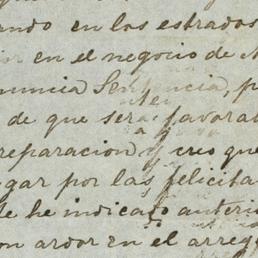 ando en los estrados
en el negocio de
nuncia Sentencia, p
de que sera favorab
reparacion, y creo que
gar por las felicita
le he indicado anteri
on ardor en el arreg